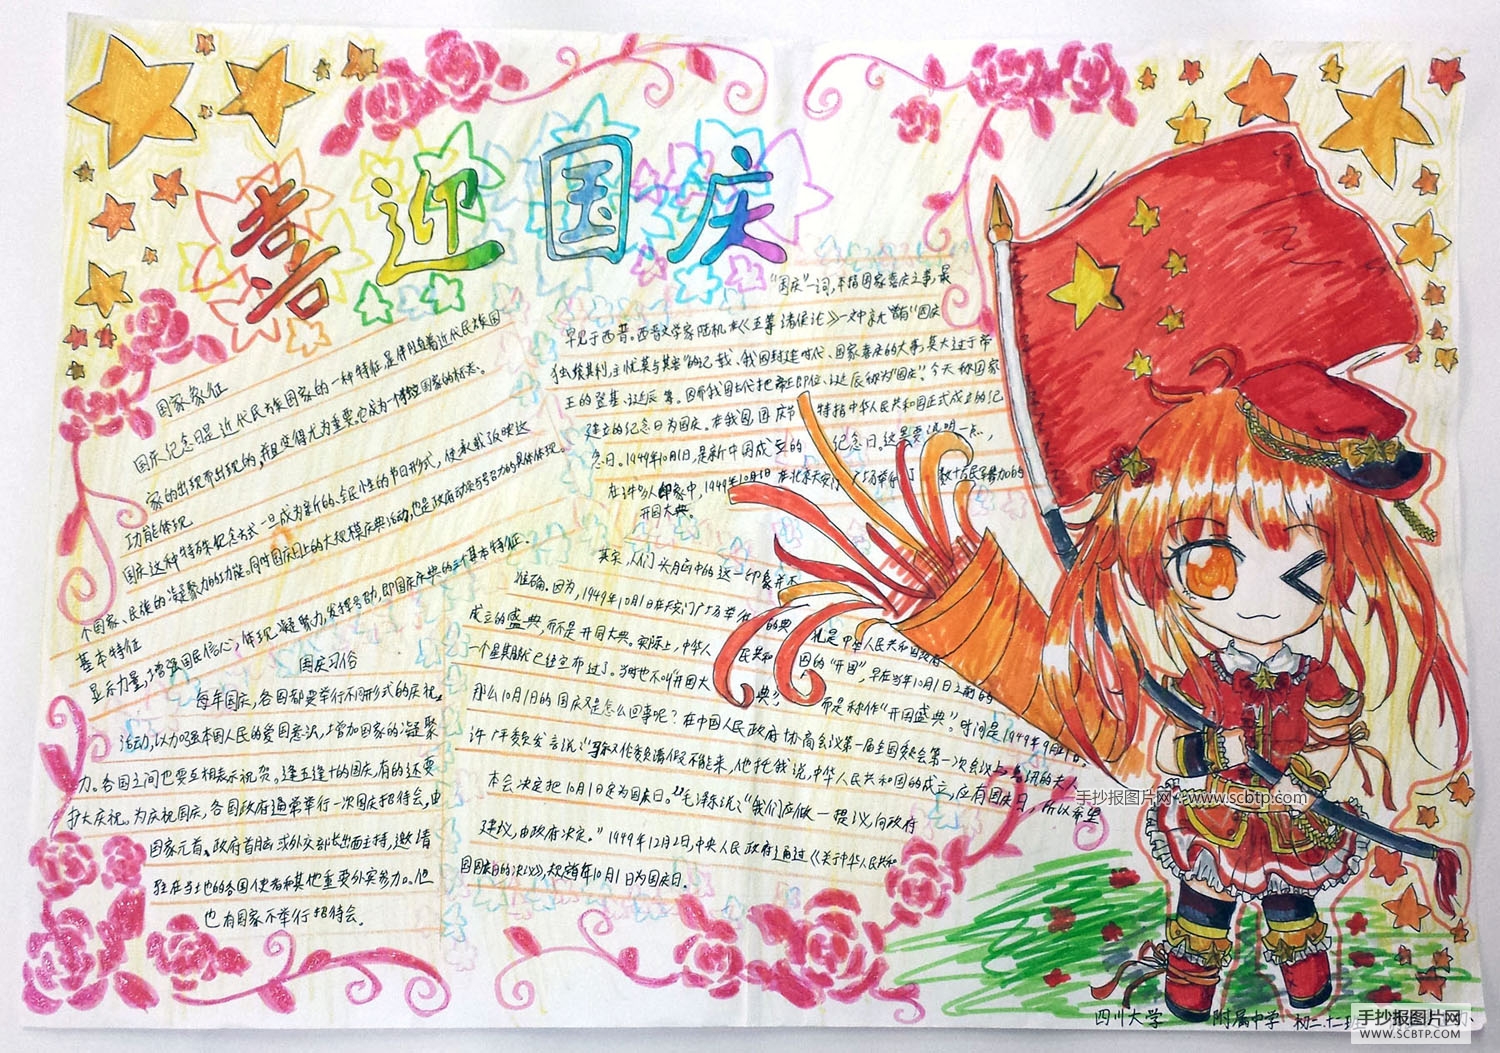 喜迎国庆
国家象征
国庆纪念日是近代民族国家的一种特征,是伴随着近代民族国
家的出现而出现的,并且变得尤为重要。它成为一个独立国家的标志。
功能体现
国庆这种特殊纪念方式一旦成为新的、全民性的节日形式,便承载了反映这
个国家、民族的凝聚力的功能。同时国庆日上的大规模庆典活动,也是政府动员与号召力的具体体现。
基本特征
显示力量,增强国民信心,体现凝聚力,发挥号召力,即国庆庆典的三个基本特征.
国庆习俗
每年国庆,各国都要举行不同形式的庆祝
活动,以加强本国人民的爱国意识,增加国家的凝聚
力。各国之间也要互相表示祝贺。逢五逢十的国庆,有的还要
扩大庆祝。为庆祝国庆,各国政府通常举行一次国庆招待会,由
国家元首、政府首脑或外交部长出面主持,邀请
驻在当地的各国使者和其他重要外宾参加。但
也有国家不举行招待会。
“国庆”一词,本指国家喜庆之事,最
早见于西晋。西晋文学家陆机在《五等诸侯论》一文中就曾有“国庆
独飨其利,主忧莫与其害”的记载、我国封建时代、国家喜庆的大事,莫大过于帝
王的登基、诞辰等。因而我国古代把帝王即位、诞辰称为“国庆”。今天称国家
建立的纪念日为国庆。在我国,国庆节特指中华人民共和国正式成立的纪
念日。1949年10月1日,是新中国成立的纪念日。这里要说明一点,
在许多人印象中,1949年10月1日在北京天安门广场举行了数十万民军参加的
开国大典。
其实,人们头脑中的这一印象并不
准确。因为,1949年10月1日在天安门广场举行的典礼是中华人民共和国政府
成立的盛典,而不是开国大典。实际上,中华人民共和国的“开国”,早在当年10月1日之前的
一个星期就已经宣布过了。当时也不叫“开国大典”,而是称作“开国盛典”。时间是1949年9月21日。
那么10月1日的国庆又是怎么回事呢?在中国人民政府协商会议第一届全国委员会第一次会议上,
许广平委员发言说:“马叙伦委员请假不能来,他托我说,中华人民共和国的成立,应有国庆日,所以希望
本会决定把10月1日定为国庆日。”毛泽东说:“我们应做一提议,向政府
建议,由政府决定。”1949年12月2日,中央人民政府通过《关于中华人民共和
国国庆日的决议》,规定每年10月1日为国庆日。
手抄报图片网 www.scbtp.com
四川大学 附属中学 初二.十二班
手抄报图片网
WWW.SCBTP.COM